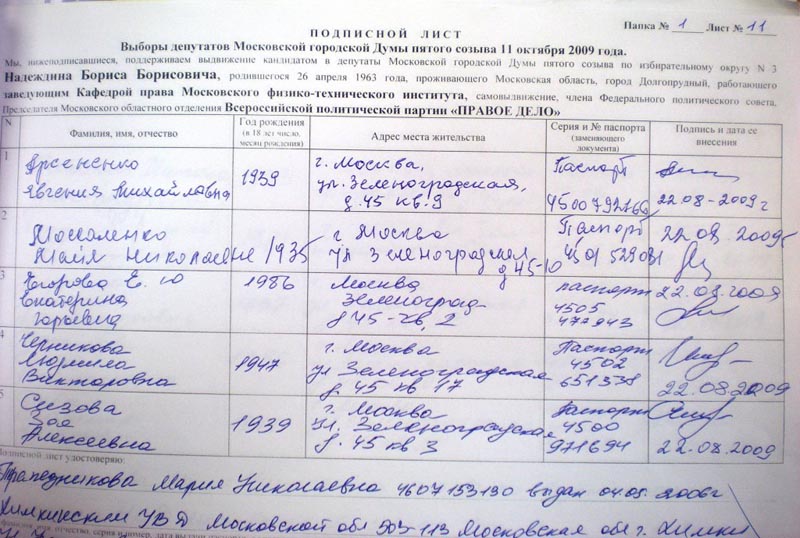 Папка № 1 Лист № 11
ПОДПИСНОЙ ЛИСТ
Выборы депутатов Московской городской Думы пятого созыва 11 октября 2009 года.
Мы, нижеподписавшиеся, поддерживаем выдвижение кандидатом в депутаты Московской городской Думы пятого созыва по избирательному округу N 3
Надеждина Бориса Борисовича, родившегося 26 апреля 1963 года, проживающего Московская область, город Долгопрудный, работающего
заведующим Кафедрой права Московского физико-технического института, самовыдвижение, члена Федерального политического совета,
Председателя Московского областного отделения Всероссийской политической партии «ПРАВОЕ ДЕЛО»
N Фамилия, имя, отчество Год рождения (в 18 лет число, месяц рождения) Адрес места жительства Серия и № паспорта (заменяющего документа) Подпись и дата ее внесения
1 Арсененко Евгения Михайловна 1939 г. Москва, ул. Зеленоградская, д. 45 кв. 9 Паспорт 4500792766 22.08-2009г
2 Москаленко Майя Николаевна 1935 г Москва ул Зеленоградская д 45-10 Паспорт 4501 529031 22.08.2009г
3 Егорова Е. Ю Екатерина 1986 Москва Зеленоград д 45-кв, 2 паспорт 4505 472943 22.08.2009
4 Черникова Людмила Викторовна 1947 г. Москва ул Зеленоградская д. 45 кв 17 Паспорт 4502 651538 22.08.2009
5 Сизова Зоя Алексеевна 1939 г. Москва ул. Зеленоградская д. 45 кв 3 Паспорт 4500 971694 22.08.2009
Подписной лист удостоверяю:
Мария Николаевна 4607 153130 выдан 04.05.2006г
Химкинским УВД Московской обл 503-113 Московская обл г. Химки